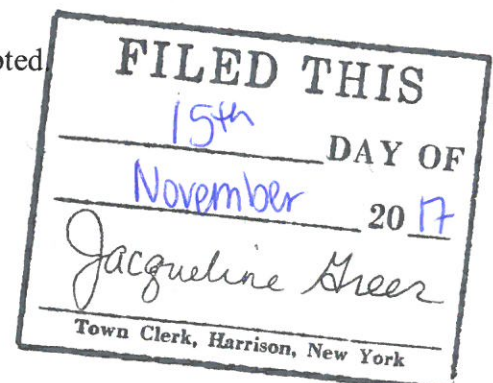 oted
FILED THIS
15th DAY OF
November 20 17
Jacqueline Greer
Town Clerk, Harrison, New York